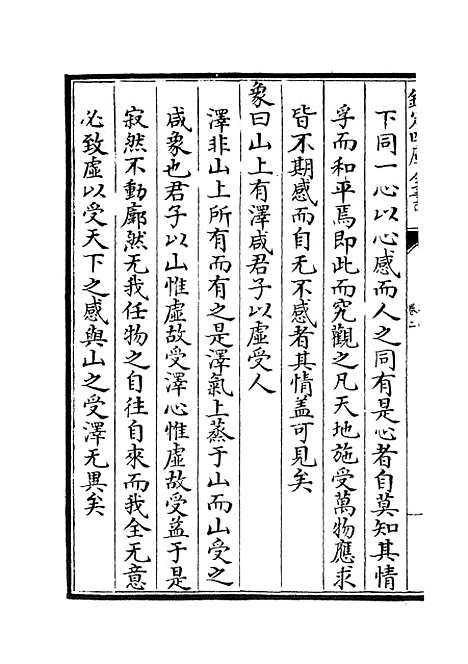 欽定四庫全書
卷二
下同一心以心感而人之同有是心者自莫知其情
孚而和平焉即此而究觀之凡天地施受萬物應求
皆不期感而自无不感者其情蓋可見矣
象曰山上有澤咸君子以虛受人
澤非山上所有而有之是澤氣上蒸于山而山受之
咸象也君子以山惟虛故受澤心惟虛故受益于是
寂然不動廓然无我任物之自往自來而我全无意
必致虛以受天下之感與山之受澤无異矣